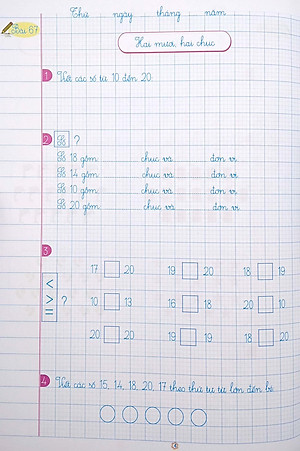 Thứ ngày tháng năm
Bài 67
Hai mươi, hai chục
1 Viết các số từ 10 đến 20.
2 Số ?
Số 18 gồm chục và đơn vị
Số 14 gồm chục và đơn vị
Số 10 gồm chục và đơn vị
Số 20 gồm chục và đơn vị
3
< > = ?
17 20 19 20 18 19
10 13 16 18 20 10
20 20 19 19 18 20
4 Viết các số 15, 14, 18, 20, 17 theo thứ tự từ lớn đến bé.